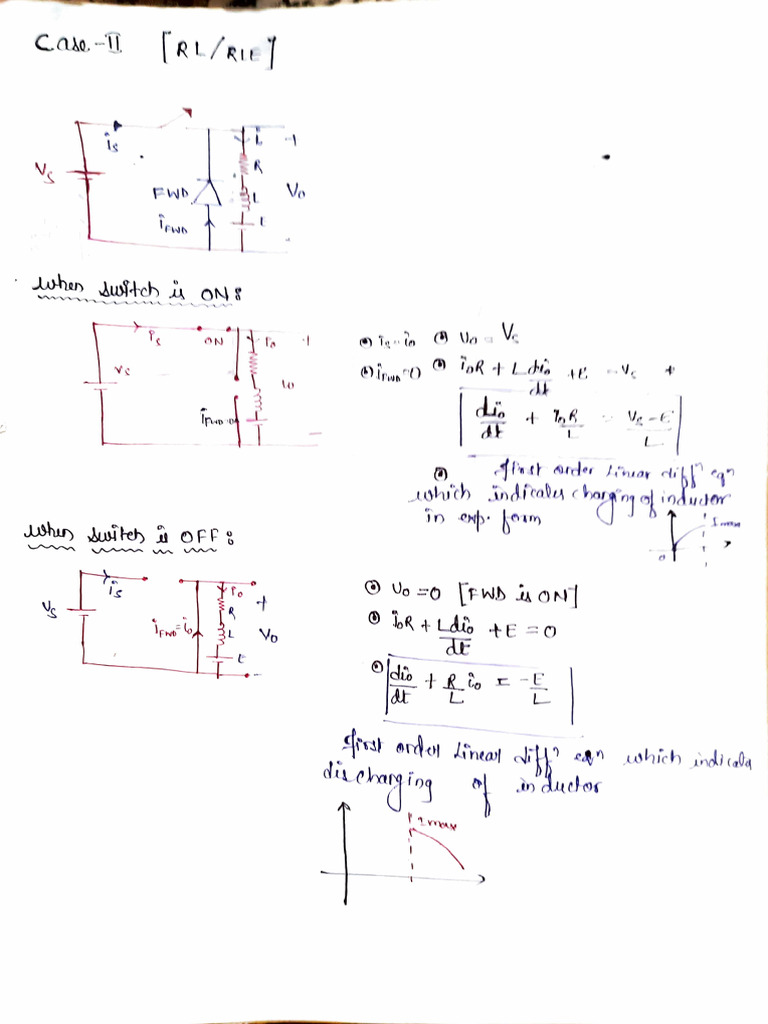 Case-II [RL/RLE]
is
io
+
R
Vs
FWD
L
Vo
iFWD
E
When switch is ON:
is
ON
io
+
Vs
iFWD=0
(a) is = io
(b) iFWD = 0
Vo = Vs
ioR + L dio/dt + E = Vs
dio/dt + ioR/L = Vs-E/L
first order linear diffn eqn
which indicates charging of inductor
in exp. form
Imax
0
When switch is OFF:
is
io
+
Vs
R
iFWD=io
L
Vo
E
-
Vo = 0 [FWD is ON]
ioR + Ldio/dt + E = 0
dio/dt + R/L io = -E/L
first order linear diffn eqn which indicala
discharging of inductor
Imax